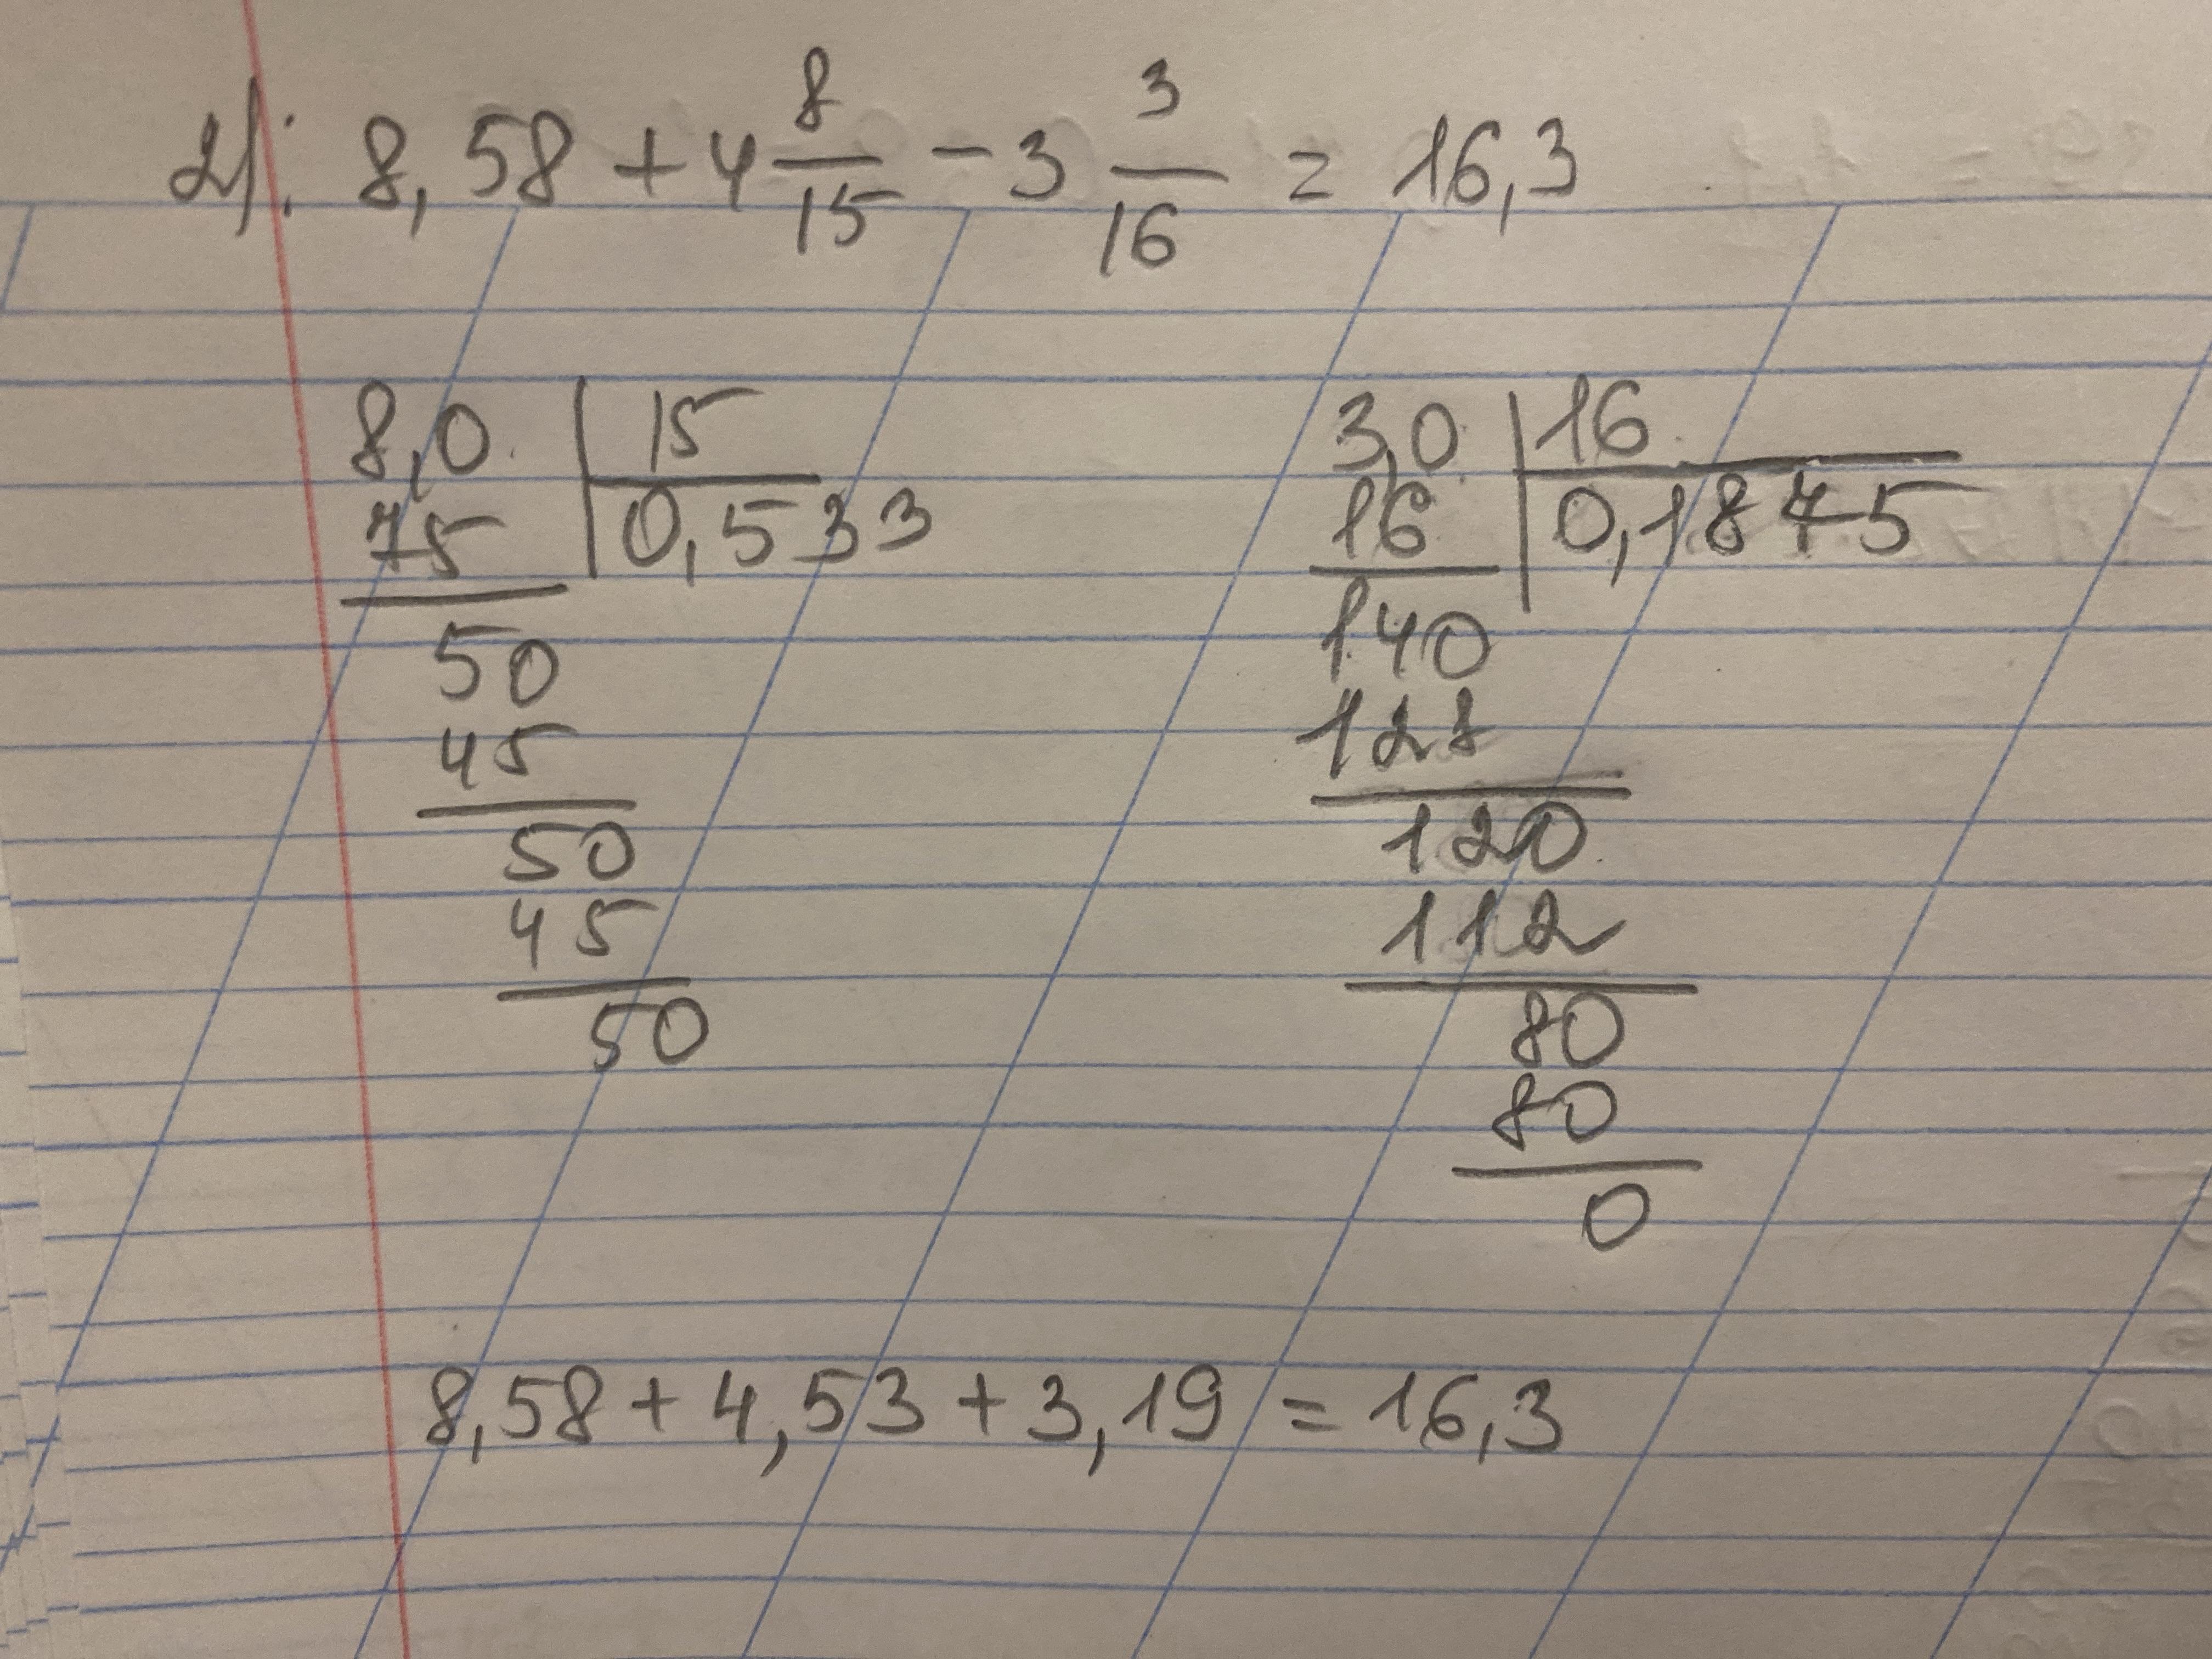 2): 8,58 + 4 8/15 - 3 3/16 = 16,3
8,0 | 15
75 | 0,533
50
45
50
45
50
3,0 | 16
16 | 0,1875
140
128
120
112
80
80
0
8,58 + 4,53 + 3,19 = 16,3